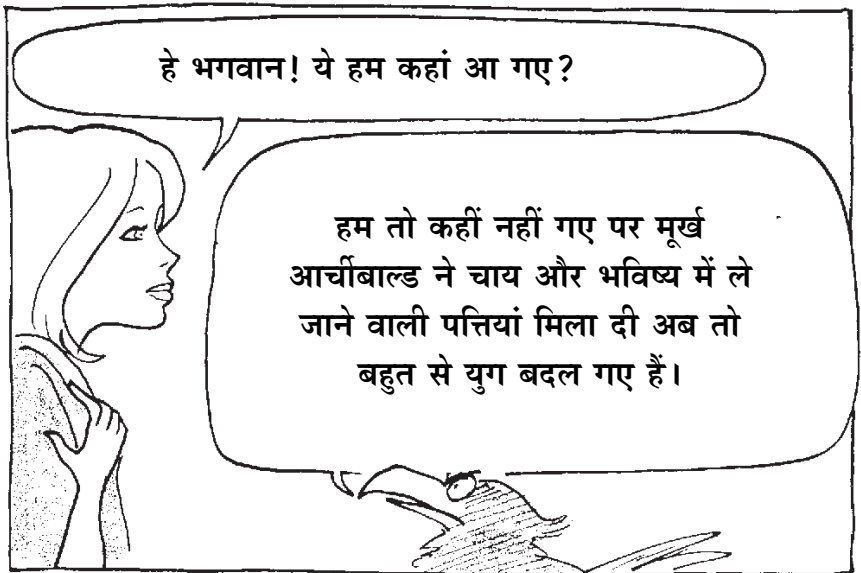 हे भगवान! ये हम कहां आ गए?
हम तो कहीं नहीं गए पर मूर्ख
आर्चीबाल्ड ने चाय और भविष्य में ले
जाने वाली पत्तियां मिला दी अब तो
बहुत से युग बदल गए हैं।